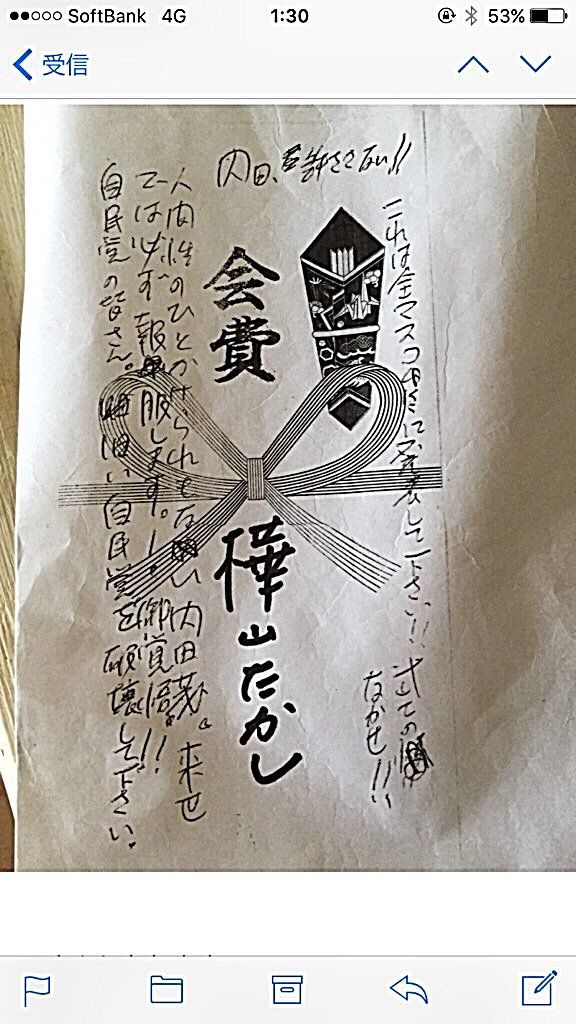 SoftBank 4G 1:30 53%
受信
内田、許さない!!
これは全マスコミに発表して下さい!!
会費
樺山たかし
人間性のひとかけらもない内田茂。来世
では必ず報服します!御覚悟!!
自民党の皆さん。旧い自民党を破壊して下さい。